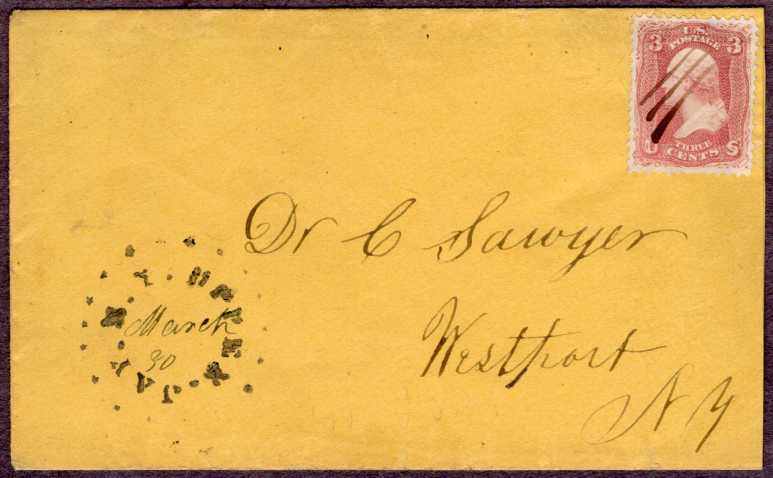 3 U.S. 3
POSTAGE
THREE
U CENTS S
Dr C Sawyer
Westport
N Y
UPPER JAY N.Y.
March
30